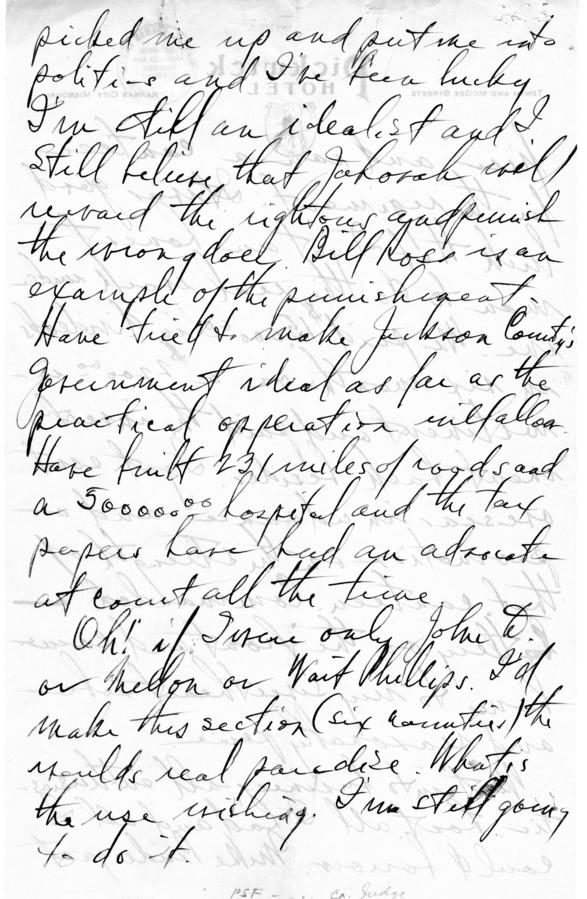 picked me up and put me into
politics and I've been lucky
I'm still an idealist and I
still believe that Jehovah will
reward the rightous and punish
the wrongdoer. Bill Ross is an
example of the punishment.
Have tried to make Jackson County's
government ideal as far as the
practical opperation will allow.
Have built 231 miles of roads and
a 500000.00 hospital and the tax
papers have had an advocate
at court all the time.
Oh! if I were only John D.
or Mellon or Wait Phillips. I'd
make this section (six counties) the
worlds real paradise. What is
the use wishing. I'm still going
to do it.
Pickwick
HOTEL
TENTH AND MCGEE STREETS
KANSAS CITY, MISSOURI
PSF - Co. Judge